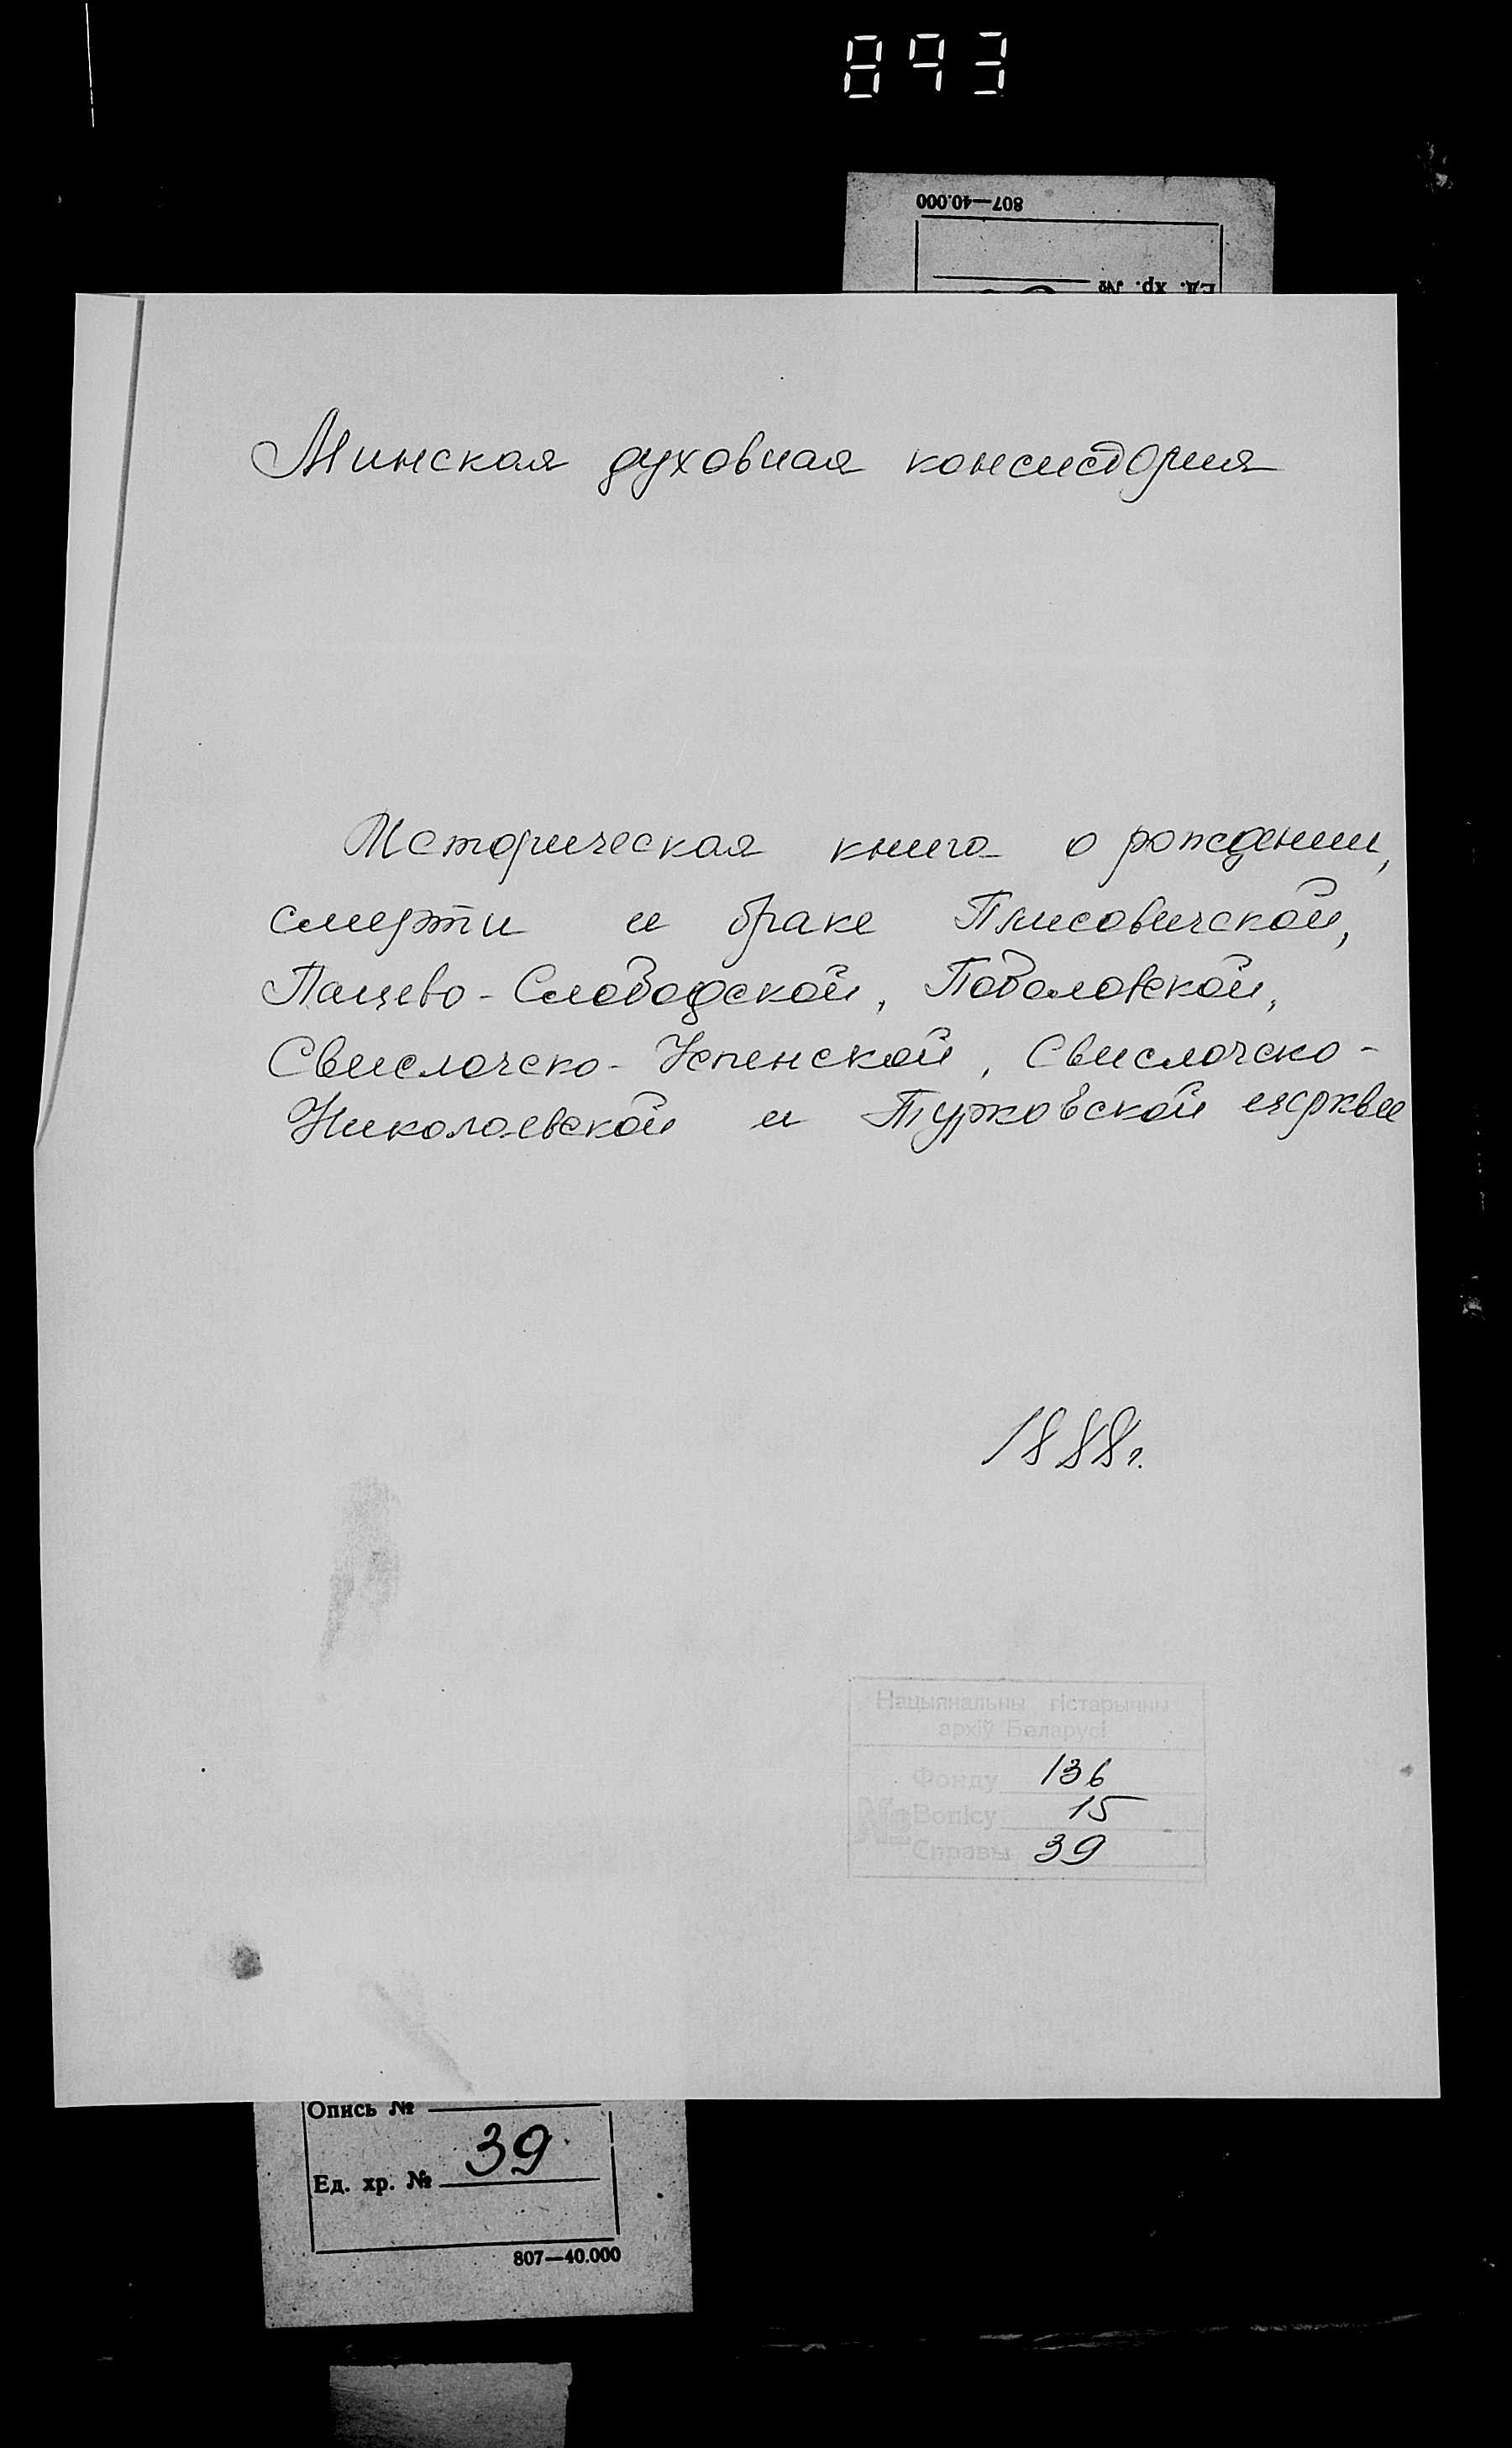 893
807—40.000
Ед. хр. №
Минская духовная консистория
Историческая книга о рождении,
смерти и браке Плисовичской,
Пацево-Слободской, Поболовской,
Свислочско-Успенской, Свислочско-
Николаевской и Турковской церкви
1888г.
Нацыянальны гістарычны
архіў Беларусі
Фонду 136
№ Вопісу 15
Справы 39
Опись №
Ед. хр. № 39
807—40.000